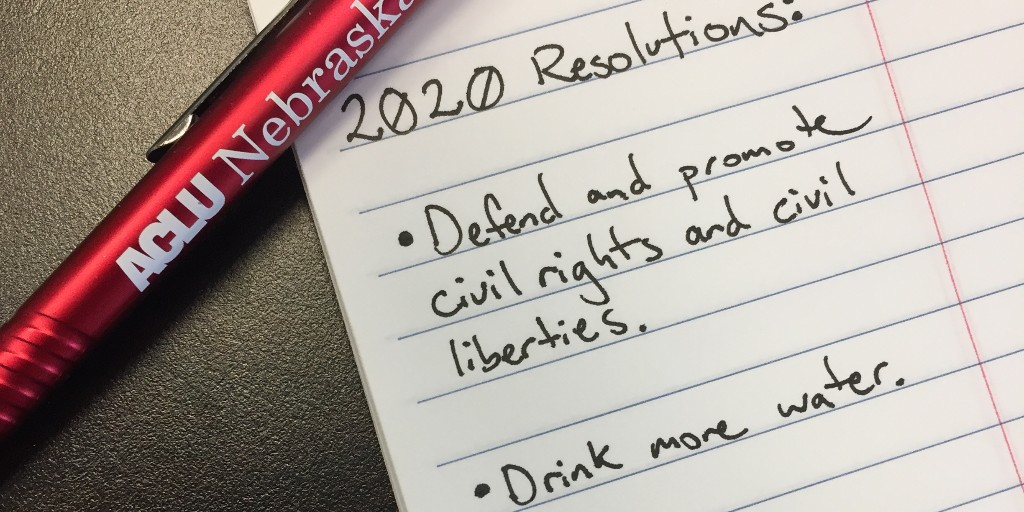 ACLU Nebraska
2020 Resolutions:
• Defend and promote
civil rights and civil
liberties.
• Drink more water.